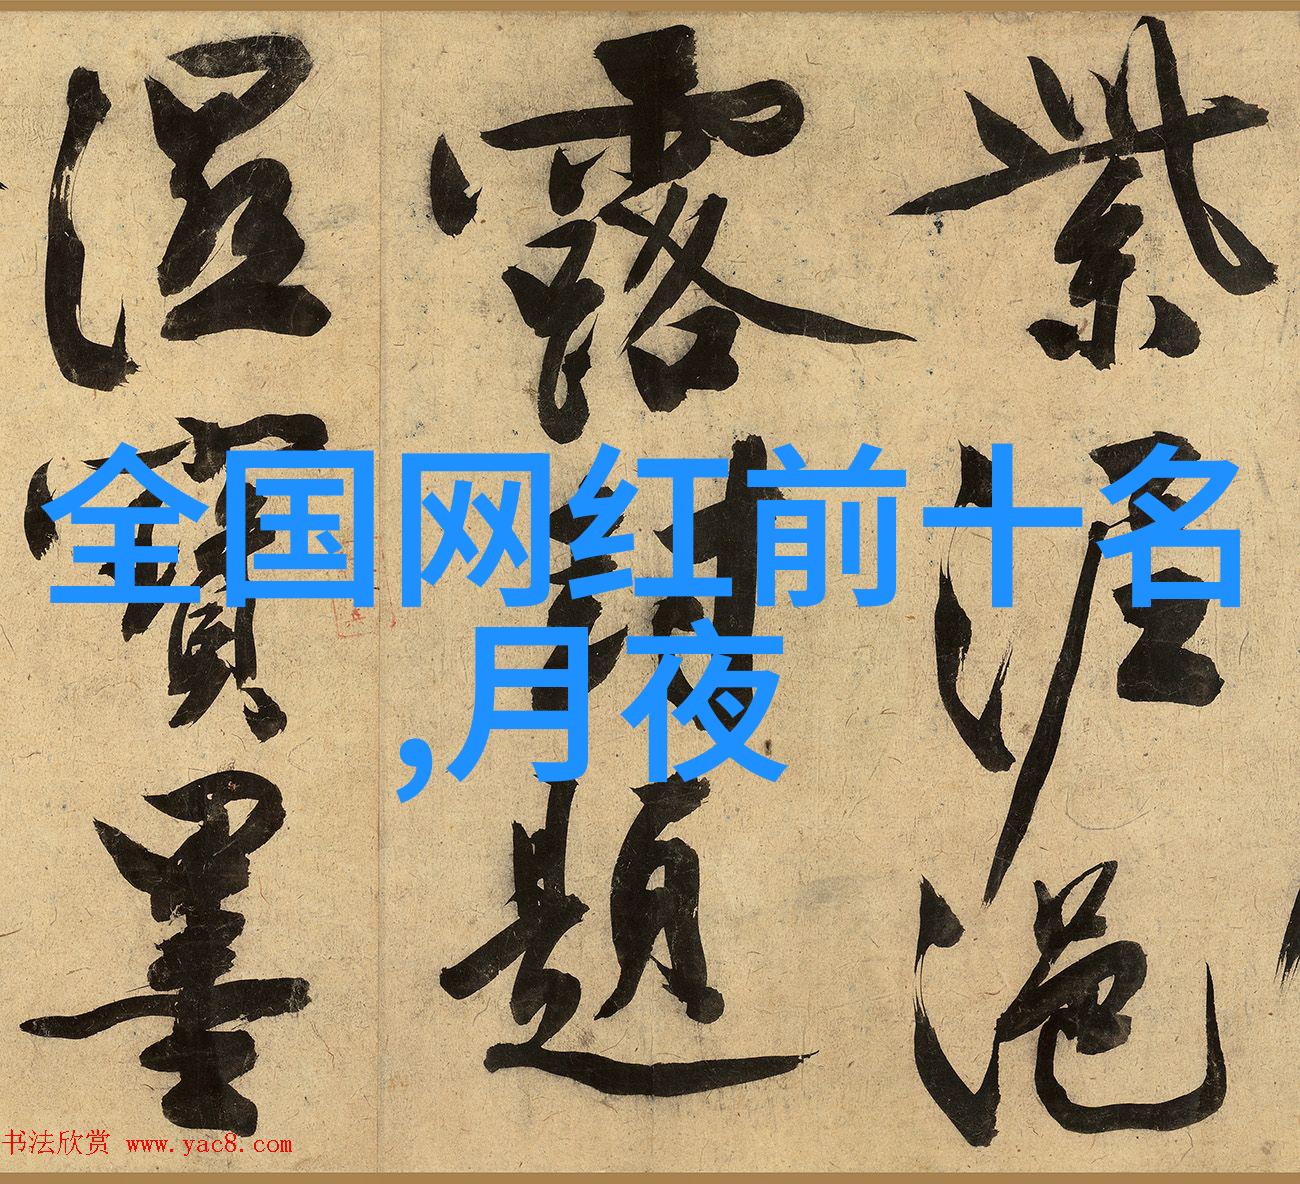 紫泥浥
露封題
溼寶墨
全国网红前十名
,月夜
书法欣赏 www.yac8.com